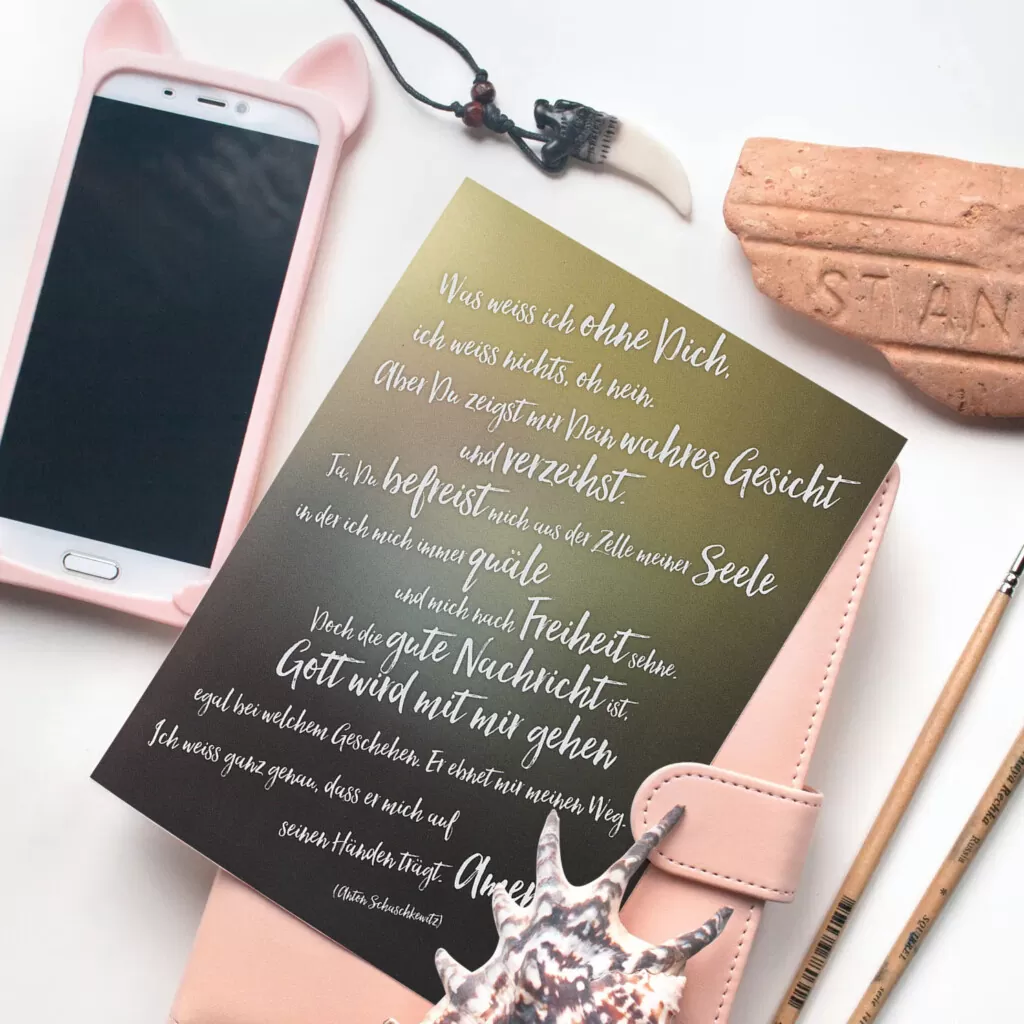 STAN
Was weiss ich ohne Dich,
ich weiss nichts, oh nein.
Aber Du zeigst mir Dein wahres Gesicht
und verzeihst.
Ja, Du befreist mich aus der Zelle meiner Seele
in der ich mich immer quäle
und mich nach Freiheit sehne.
Doch die gute Nachricht ist,
Gott wird mit mir gehen
egal bei welchem Geschehen. Er ebnet mir meinen Weg.
Ich weiss ganz genau, dass er mich auf
seinen Händen trägt. Amen
(Anton Schuschkewitz)
Rechka Russia
SQUIRREL serie